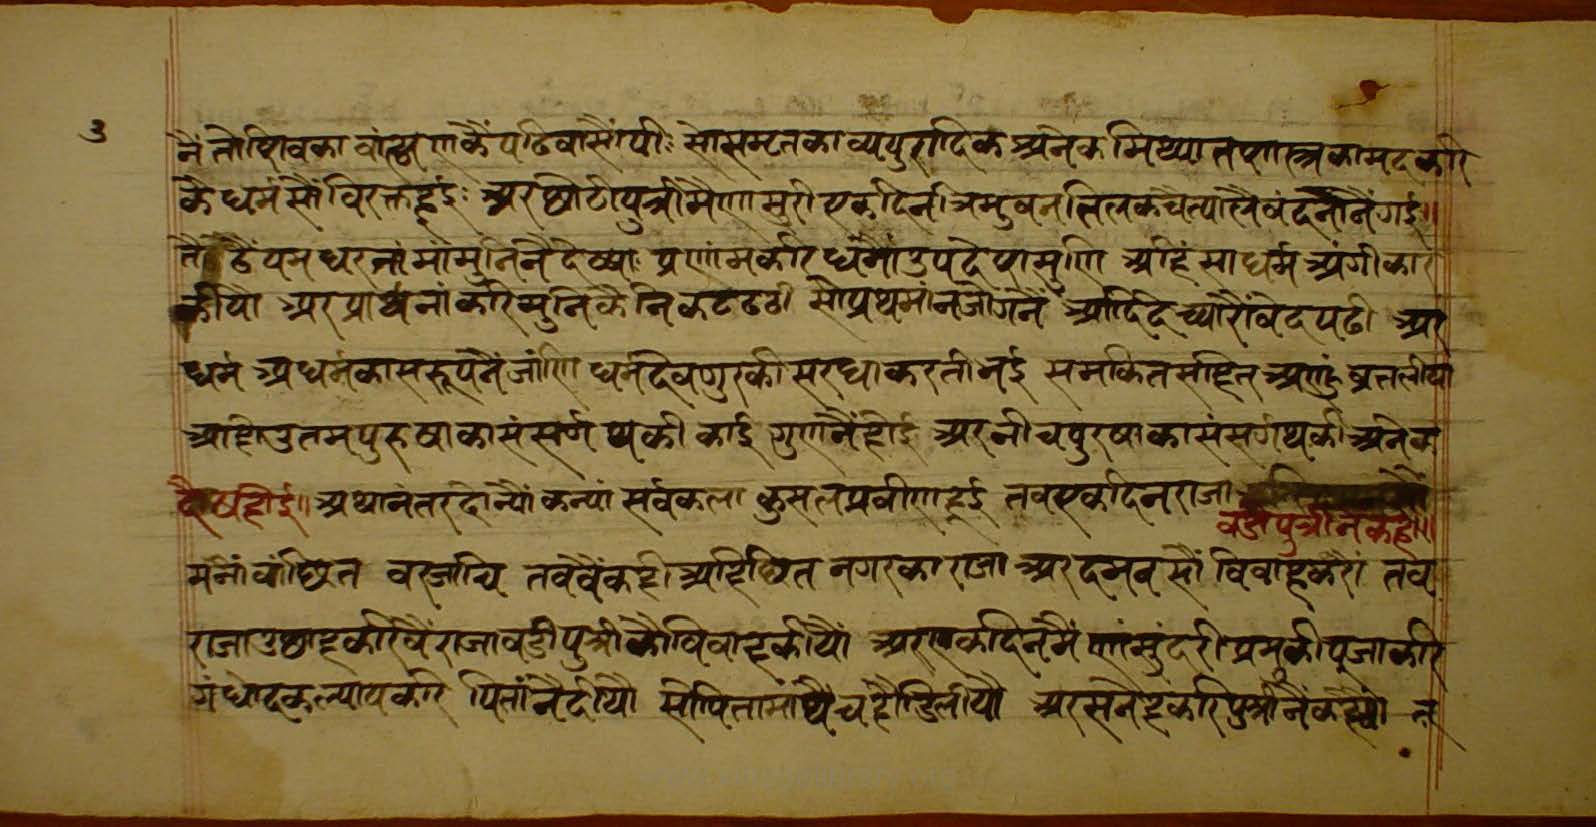 ३
नैं तो शिवका वांह्मणकैं पढिवा सौंपी: सो समृत काव्य पुरादिक अनेक मिथ्यात शास्त्र का मद करि
कै धर्म सौं विरक्त हूई: अर छोटी पुत्री मैणासुरी एक दिन त्रिभुवनतिलक चैत्यालै वंदनानैं गई॥
तैठैं यमधर नांमां मुनिनै देष्या प्रणांम करि धर्मको उपदेश सुणि अहिंसा धर्म अंगीकार
कीयो अर प्रार्थनां करि मुनिकै निकट पढी सो प्रथमांनजोगनैं आदि दे च्यारौं वेद पढी अर
धर्म अधर्म का सरूपनै जांणि धर्म देव गुर की सरधा करती भई समकित सहित अणु व्रत लीया
अहो उतम पुरुषा का संसर्ग थकी काई गुण नैं होई अर नीच पुरषा का संसर्ग थकी अनेक
दोष होई॥ अथानंतर दोन्यौं कन्यां सर्व कला कुसल प्रवीण हूई तव एक दिन राजा
वडी पुत्रीनै कही॥
मनौं वांछित वर जाचि तव वैं कही अहिछित नगर का राजा अरदमन सौं विवाह करौ तव
राजा उछाह करि वैं राजा वडी पुत्री कौ विवाह कीयौ अर एक दिन मैंणांसुंदरी प्रभु की पूजा करि
गंधोदक ल्याय करि पितांनै दीयौ सो पिता माथै चहोडि लीयौ अर सनेह करि पुत्रीनैं कह्यौ